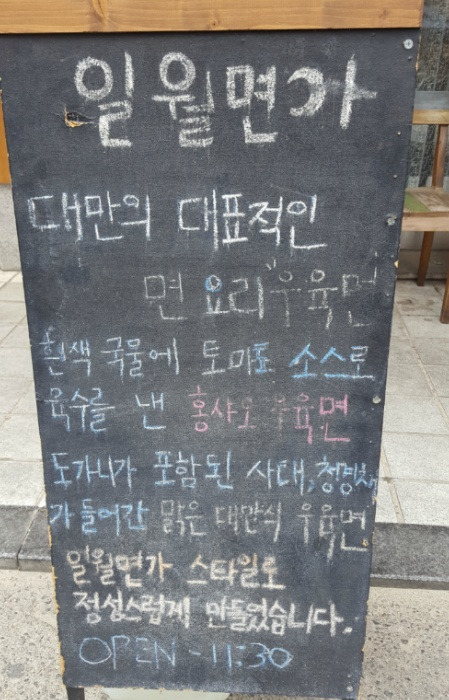 일월면가
대만의 대표적인
면 요리 "우육면"
흰색 국물에 토마토 소스로
육수를 낸 홍샤오 우육면
도가니가 포함된 사태, 청경채
가 들어간 맑은 대만식 우육면
일월면가 스타일로
정성스럽게 만들었습니다.
OPEN - 11:30